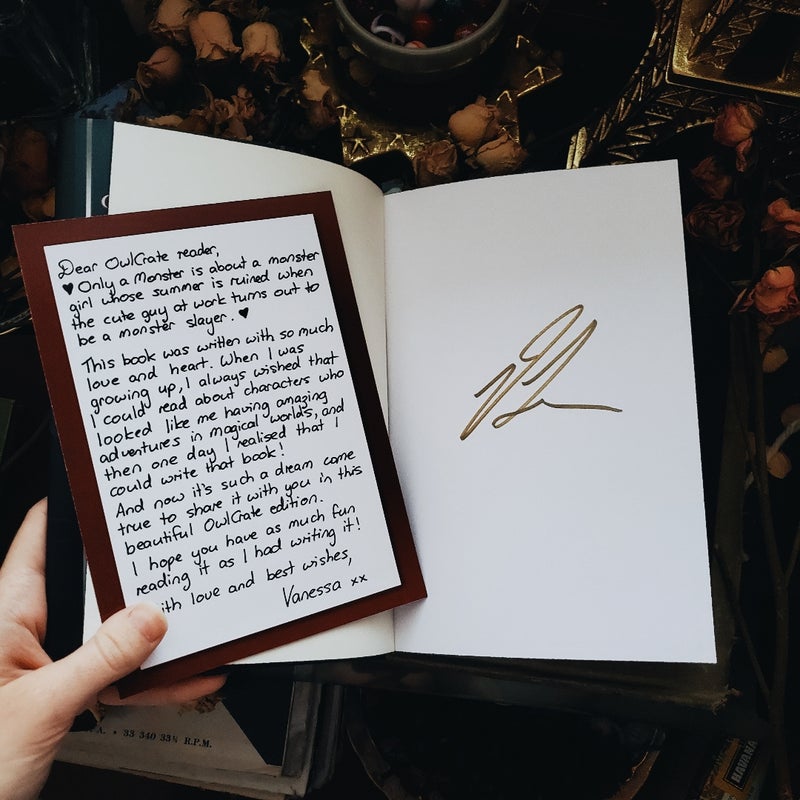 Dear OwlCrate reader,
♥ Only a Monster is about a monster
girl whose summer is ruined when
the cute guy at work turns out to
be a monster slayer. ♥
This book was written with so much
love and heart. When I was
growing up, I always wished that
I could read about characters who
looked like me having amazing
adventures in magical worlds, and
then one day I realised that I
could write that book!
And now it's such a dream come
true to share it with you in this
beautiful OwlCrate edition.
I hope you have as much fun
reading it as I had writing it!
ith love and best wishes,
Vanessa xx
A. • 33 340 33⅓ R.P.M.
HAVANA